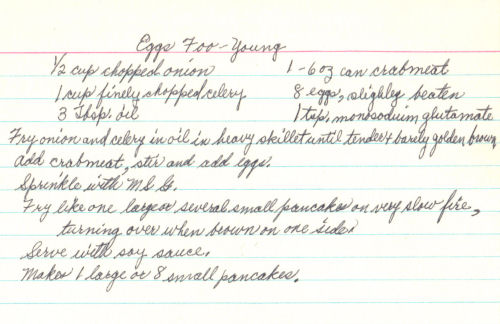 Eggs Foo-Young
1/2 cup chopped onion
1 cup finely chopped celery
3 Tbsp. oil
1 - 6 oz can crabmeat
8 eggs, slighley beaten
1 tsp. monosoduim glutamate
Fry onion and celery in oil in heavy skillet until tender & barely golden brown
add crabmeat, stir and add eggs.
Sprinkle with M.S.G.
Fry like one large or several small pancakes on very slow fire,
turning over when brown on one side.
Serve with soy sauce.
Makes 1 large or 8 small pancakes.